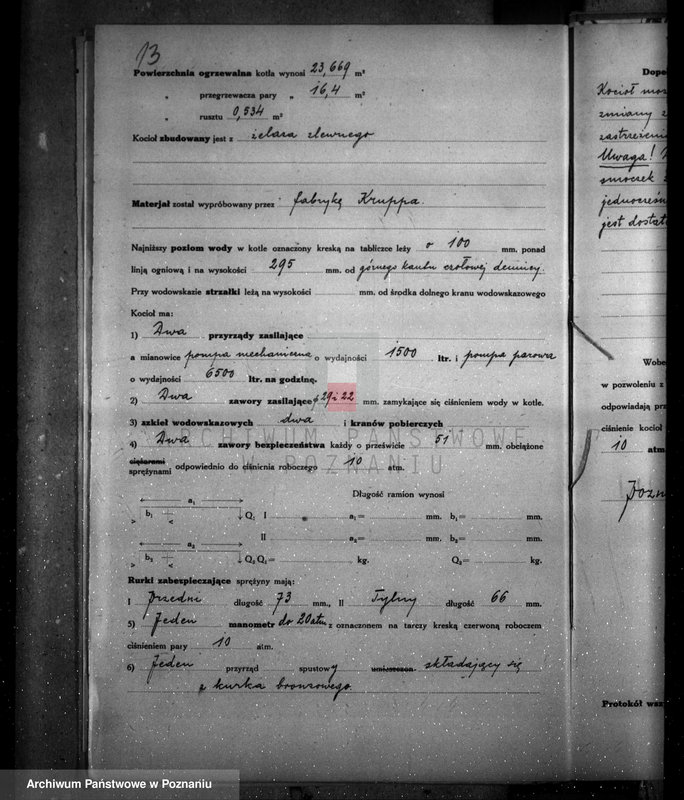 13
Powierzchnia ogrzewalna kotła wynosi 23,669 m²
„ przegrzewacza pary „ 16,4 m²
„ rusztu 0,534 m²
Kocioł zbudowany jest z żelaza zlewnego
Materjał został wypróbowany przez fabrykę Kruppa.
Najniższy poziom wody w kotle oznaczony kreską na tabliczce leży o 100 mm. ponad
linją ogniową i na wysokości 295 mm. od górnego kantu czołowej dennicy.
Przy wodowskazie strzałki leżą na wysokości mm. od środka dolnego kranu wodowskazowego
Kocioł ma:
1) Dwa przyrządy zasilające
a mianowice pompa mechaniczna o wydajności 1500 ltr. i pompa parowa
o wydajności 6500 ltr. na godzinę.
2) Dwa zawory zasilające ø 29 i 22 mm. zamykające się ciśnieniem wody w kotle.
3) szkieł wodowskazowych dwa i kranów pobierczych
4) Dwa zawory bezpieczeństwa każdy o prześwicie 51 mm. obciążone
ciężarami
sprężynami odpowiednio do ciśnienia roboczego 10 atm.
ARCHIWUM PAŃSTWOWE
W POZNANIU
Długość ramion wynosi
a₁ b₁ Q₁ I a₁= mm. b₁= mm.
II a₂= mm. b₂= mm.
a₂ b₂ Q₂ Q₁= kg. Q₂= kg.
Rurki zabezpieczające sprężyny mają:
I Przedni długość 73 mm., II Tylny długość 66 mm.
5) Jeden manometr do 20 atm z oznaczonem na tarczy kreską czerwoną roboczem
ciśnieniem pary 10 atm.
6) Jeden przyrząd spustowy umieszczon składający się
z kurka bronzowego.
Kocioł
zmiany
Uwaga!
smoczek
jest
w pozwoleniu z
odpowiadają
ciśnienie kocioł
10 atm
Protokół
Archiwum Państwowe w Poznaniu